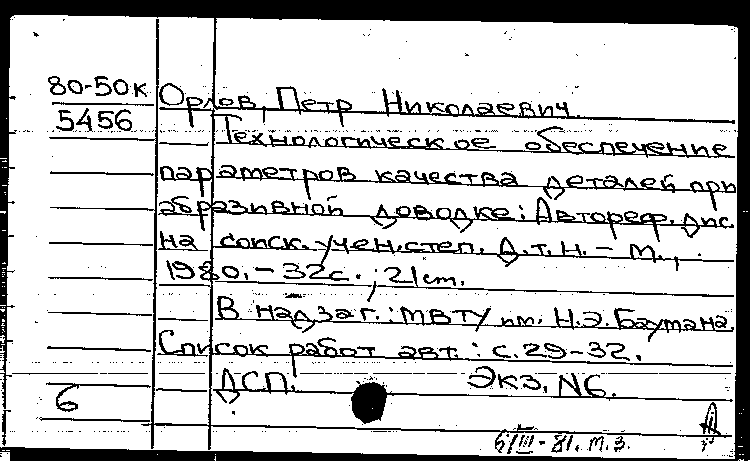 80-50к
5456
Орлов, Петр Николаевич.
Технологическое обеспечение
параметров качества деталей при
абразивной доводке: Автореф. дис.
на соиск. учен. степ. д.т.н. – М.,
1980. – 32с. ; 21 cm.
В надзаг.: МВТУ им. Н.Э. Баумана.
Список работ авт.: с. 29-32.
ДСП.    Экз. N6.
6
6/III - 81. т.з.